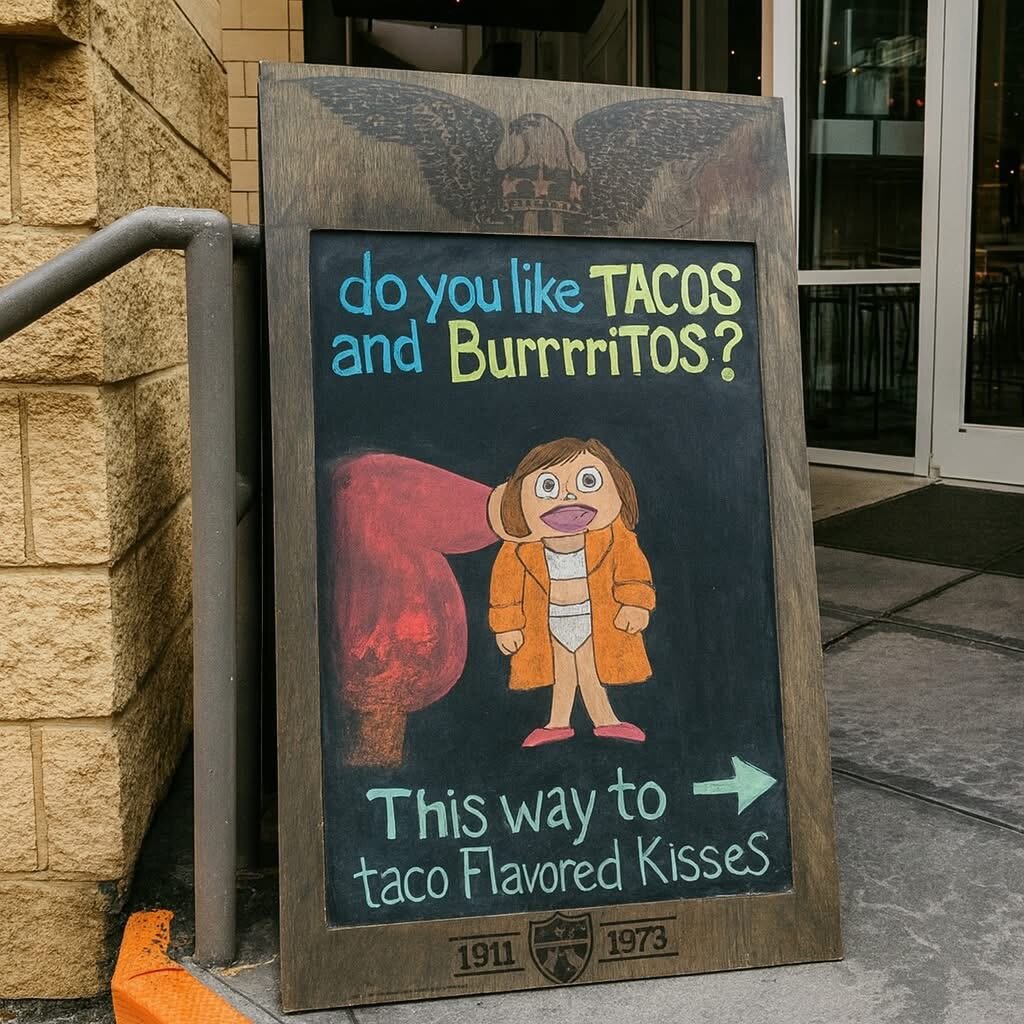 do you like TACOS
and BurrrriTOS?
This way to
taco Flavored Kisses
1911 1973